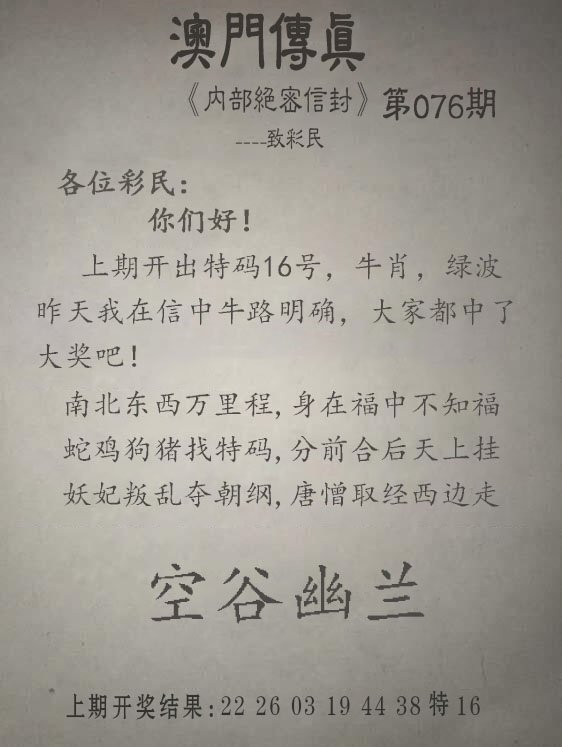 澳門傳眞
《内部絕密信封》第076期
----致彩民
各位彩民：
你们好！
上期开出特码16号，牛肖，绿波
昨天我在信中牛路明确，大家都中了
大奖吧！
南北东西万里程,身在福中不知福
蛇鸡狗猪找特码,分前合后天上挂
妖妃叛乱夺朝纲,唐憎取经西边走
空谷幽兰
上期开奖结果:22 26 03 19 44 38 特 16